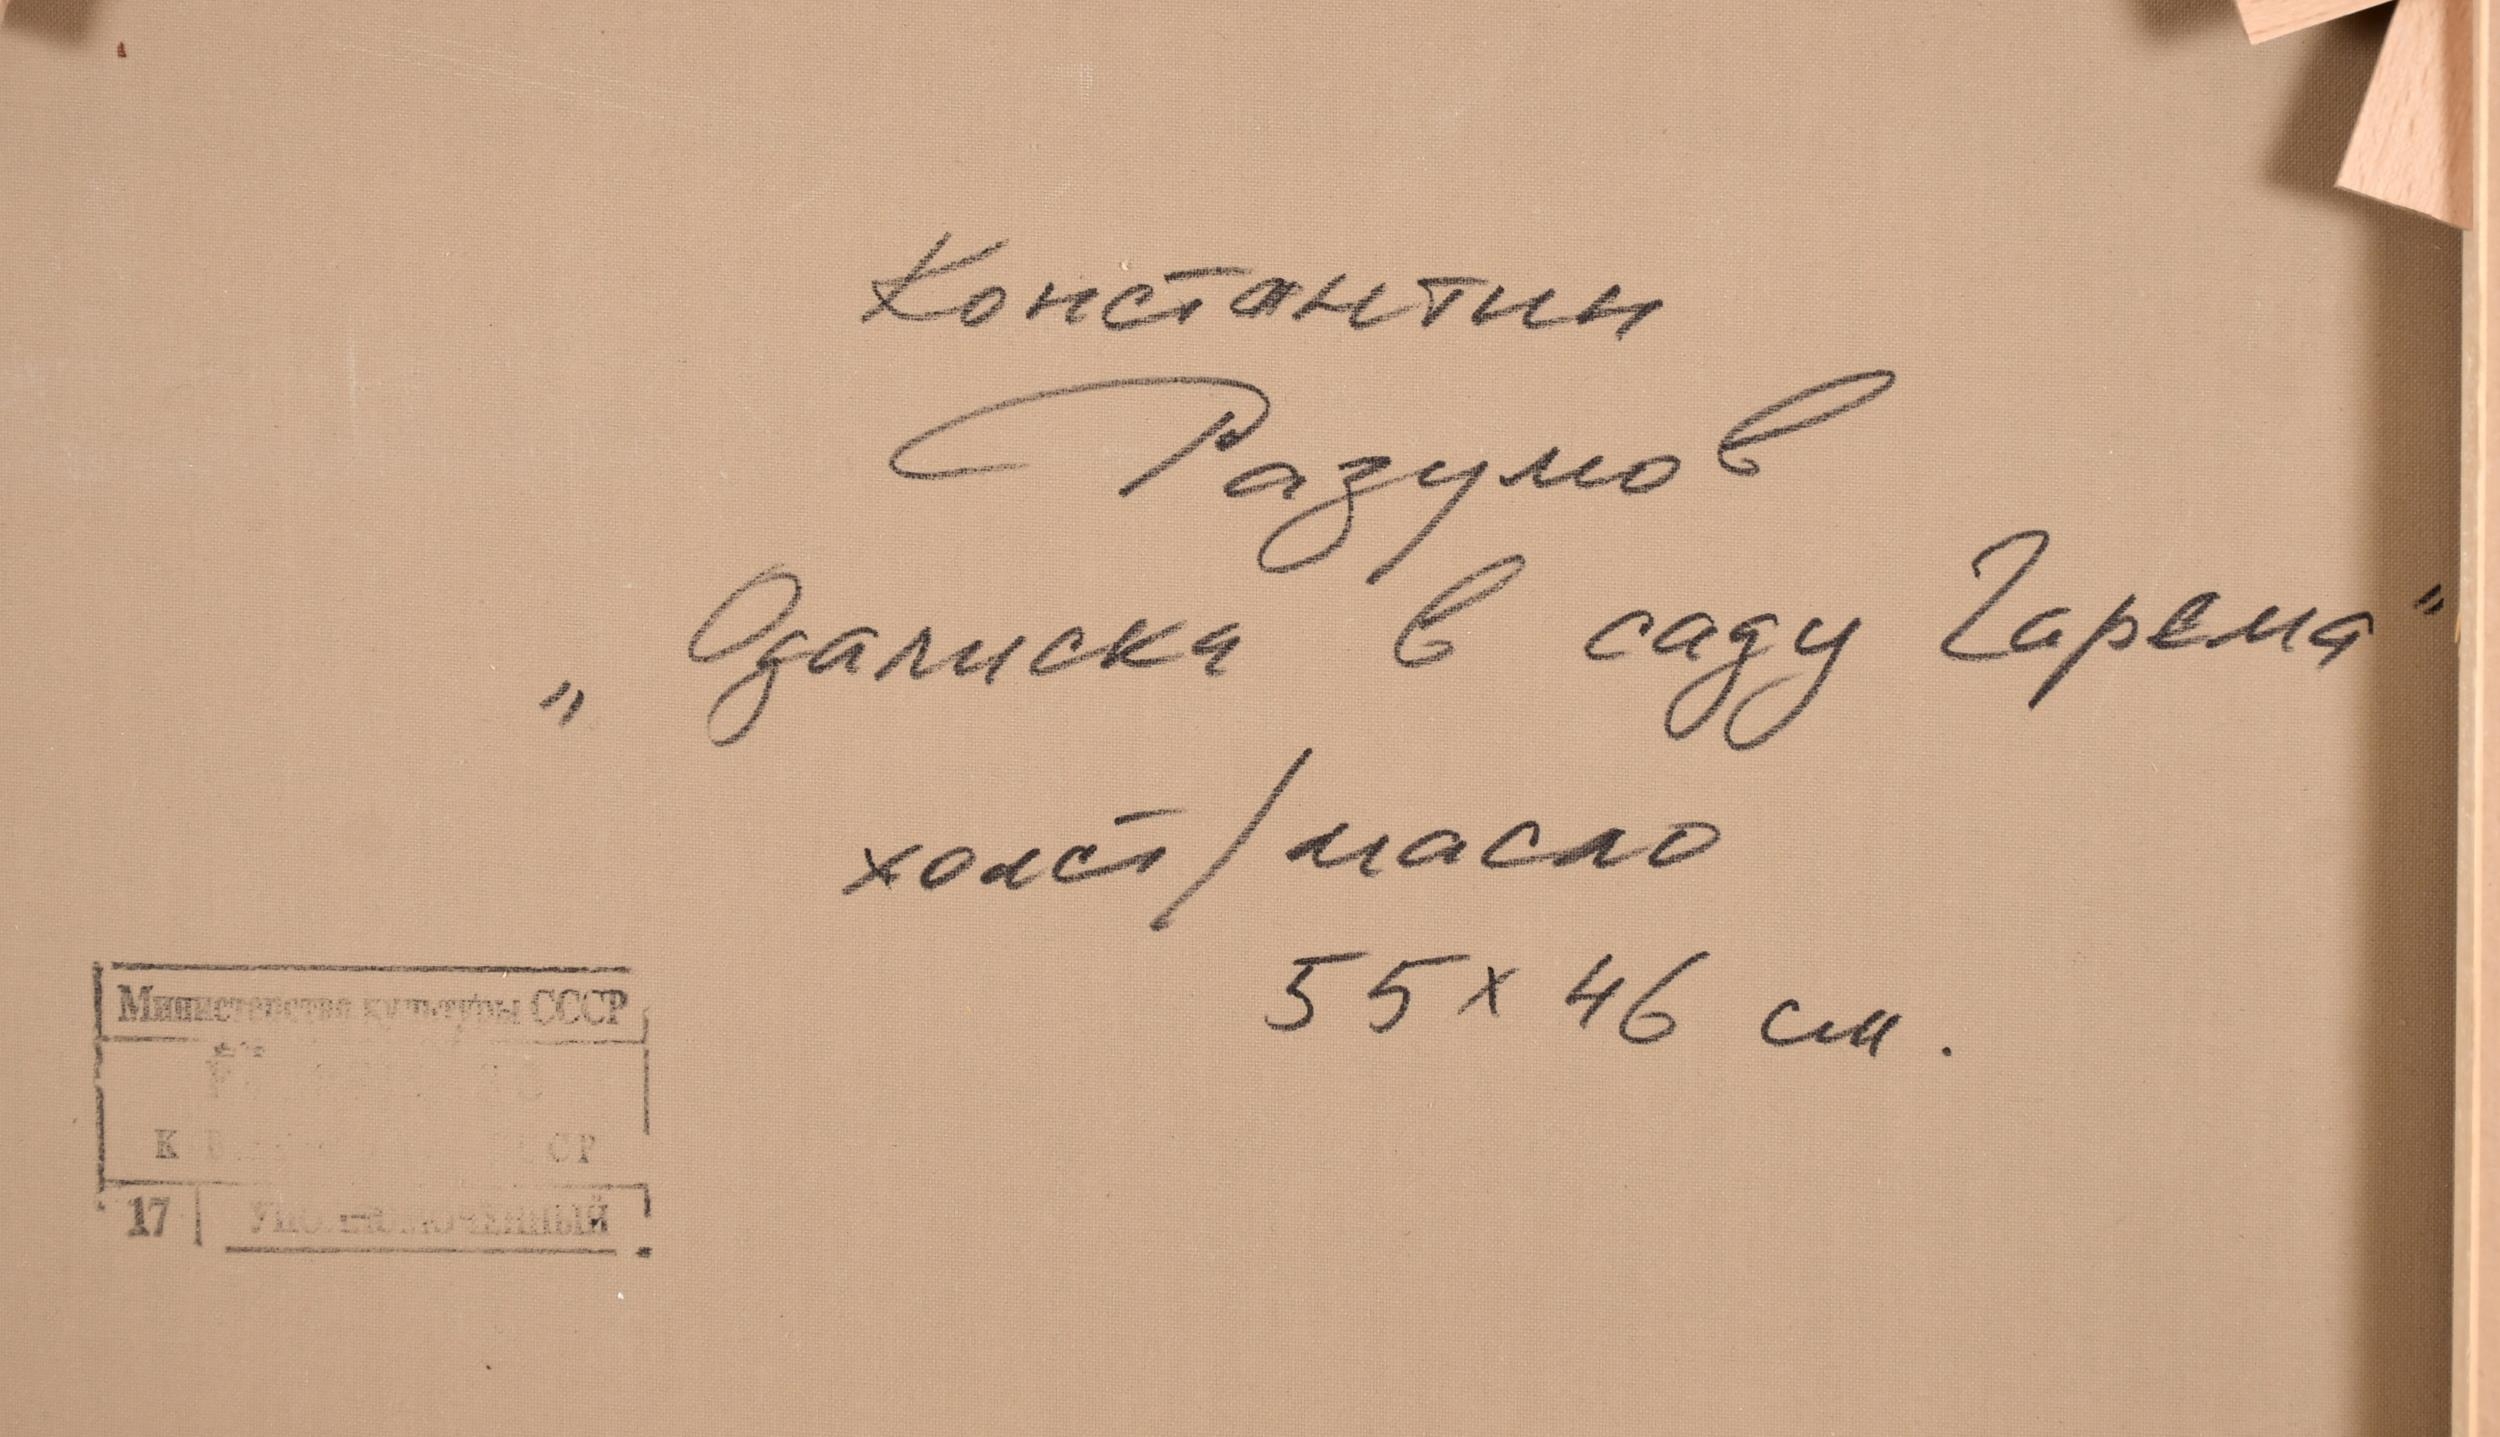 Константин
Разумов
„Одалиска в саду Гарема"
холст/масло
55 x 46 см.
Министерство культуры СССР
К
17 УПОЛНОМОЧЕННЫЙ